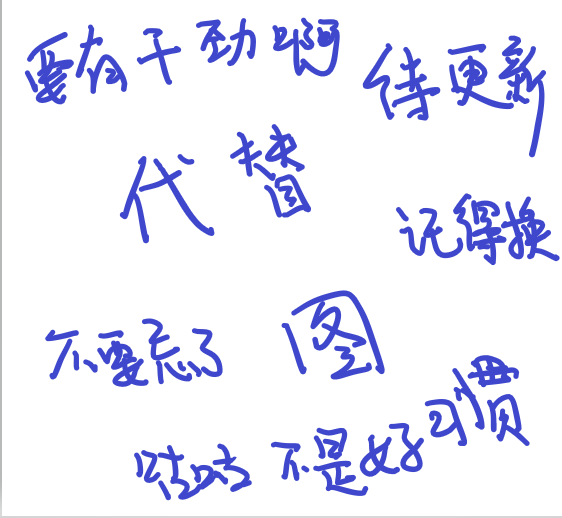 要有干劲啊
待更新
代替
记得换
不要忘了
图
咕咕不是好习惯